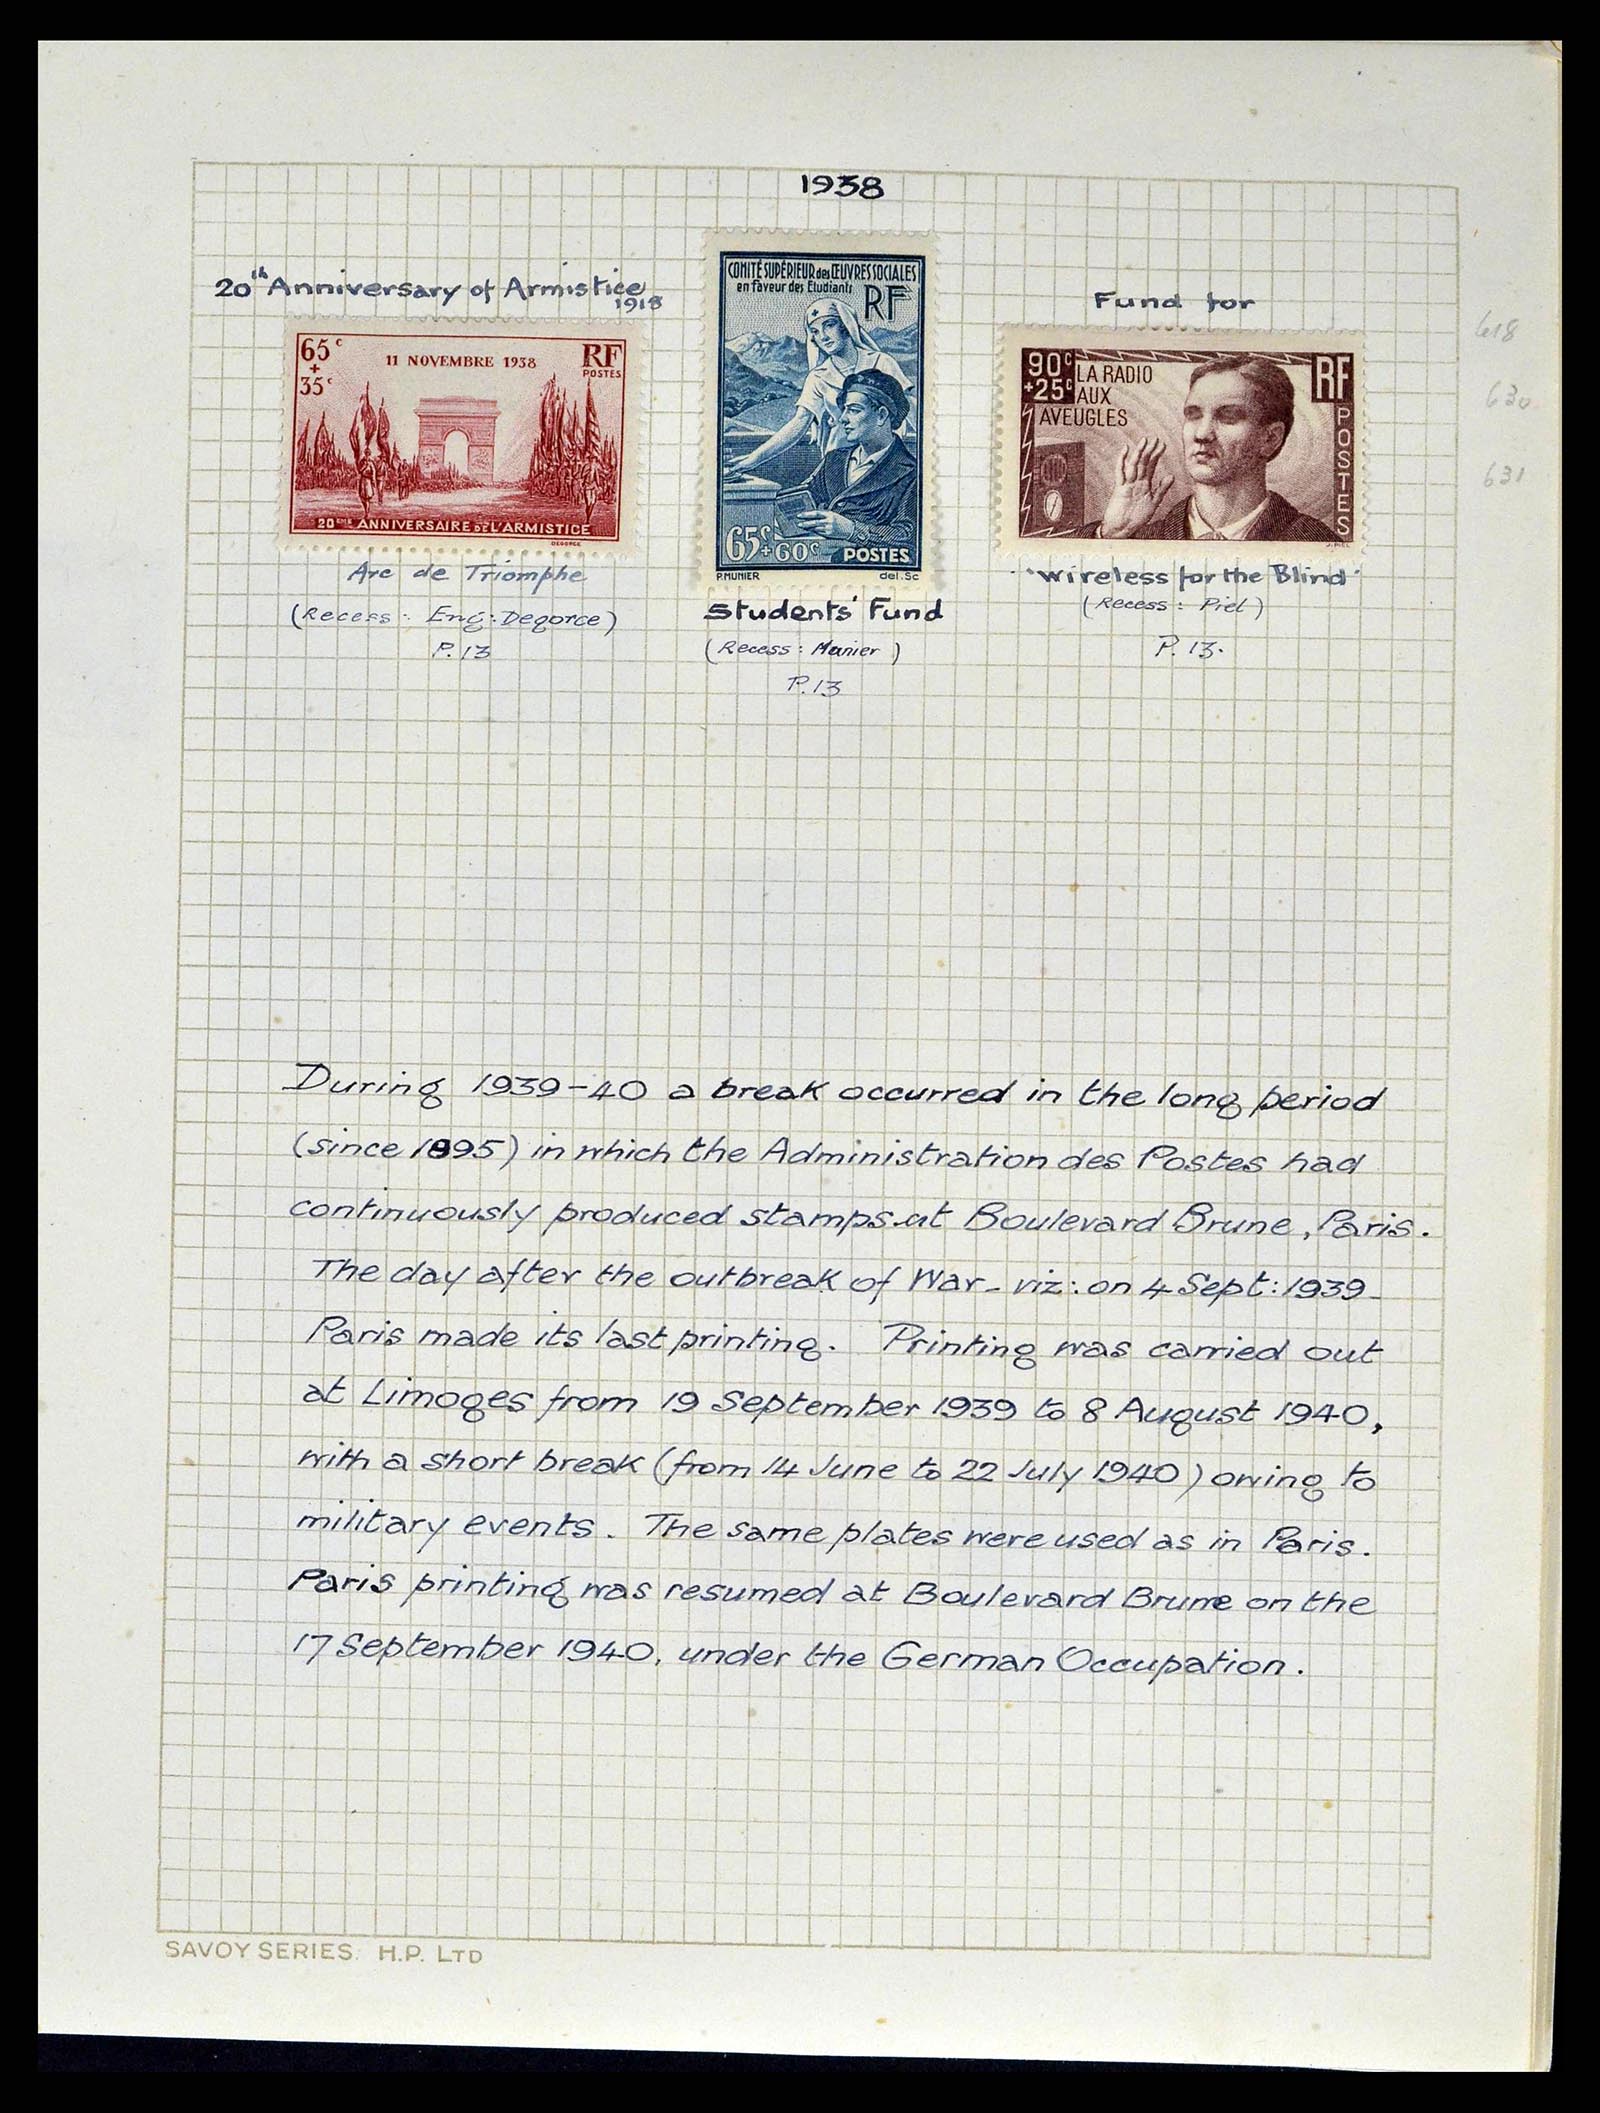 1938
20th Anniversary of Armistice
1918
65c
+
35c
11 NOVEMBRE 1938
RF
POSTES
20EME ANNIVERSAIRE DE L'ARMISTICE
DEGORCE
Arc de Triomphe
(Recess: Eng: Degorce)
P. 13
COMITÉ SUPÉRIEUR des ŒUVRES SOCIALES
en faveur des Etudiants
RF
65c+60c POSTES
P.MUNIER del.Sc
Students' Fund
(Recess: Munier)
P. 13
Fund for
90c
+25c
LA RADIO
AUX
AVEUGLES
RF
POSTES
J.PIEL
"Wireless for the Blind"
(Recess: Piel)
P. 13.
618
630
631
During 1939-40 a break occurred in the long period
(since 1895) in which the Administration des Postes had
continuously produced stamps at Boulevard Brune, Paris.
The day after the outbreak of War - viz: on 4 Sept: 1939 -
Paris made its last printing. Printing was carried out
at Limoges from 19 September 1939 to 8 August 1940,
with a short break (from 14 June to 22 July 1940) owing to
military events. The same plates were used as in Paris.
Paris printing was resumed at Boulevard Brune on the
17 September 1940, under the German Occupation.
SAVOY SERIES. H.P. LTD